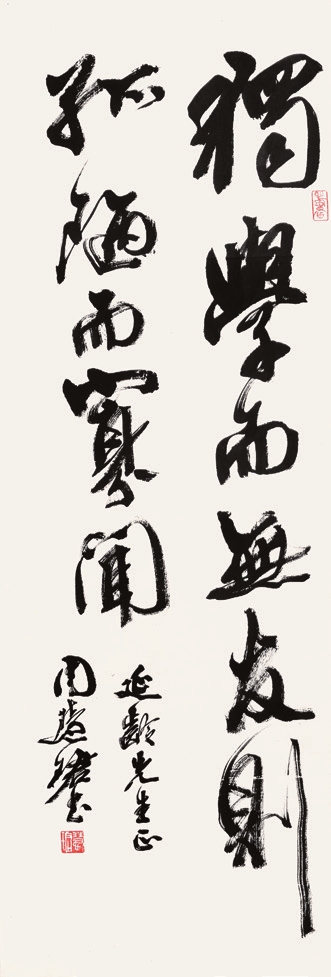 獨學而無友則
孤陋而寡聞
延齡先生正
周慧珺書